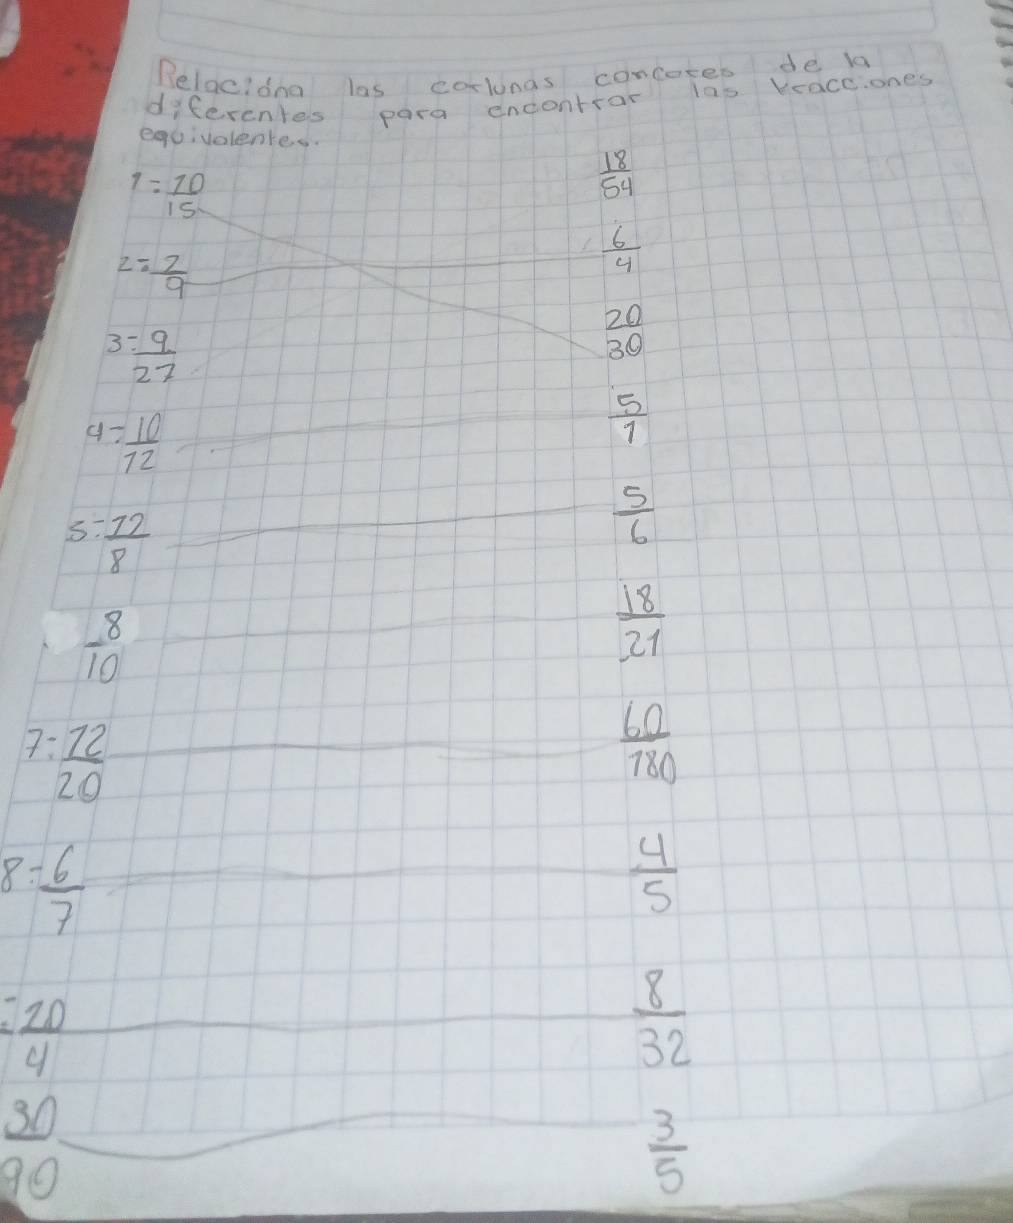 Relacióna las corlunas concotes de la
diferentes para encontrar las vracciones
equivalentes.
1= 10/15 18/54
2= 2/9 6/4
3= 9/27 20/30
4= 10/12 5/1
5= 12/8 5/6
8/10 18/21
7= 12/20 60/180
8= 6/7 4/5
= 20/4 8/32
30/90 3/5